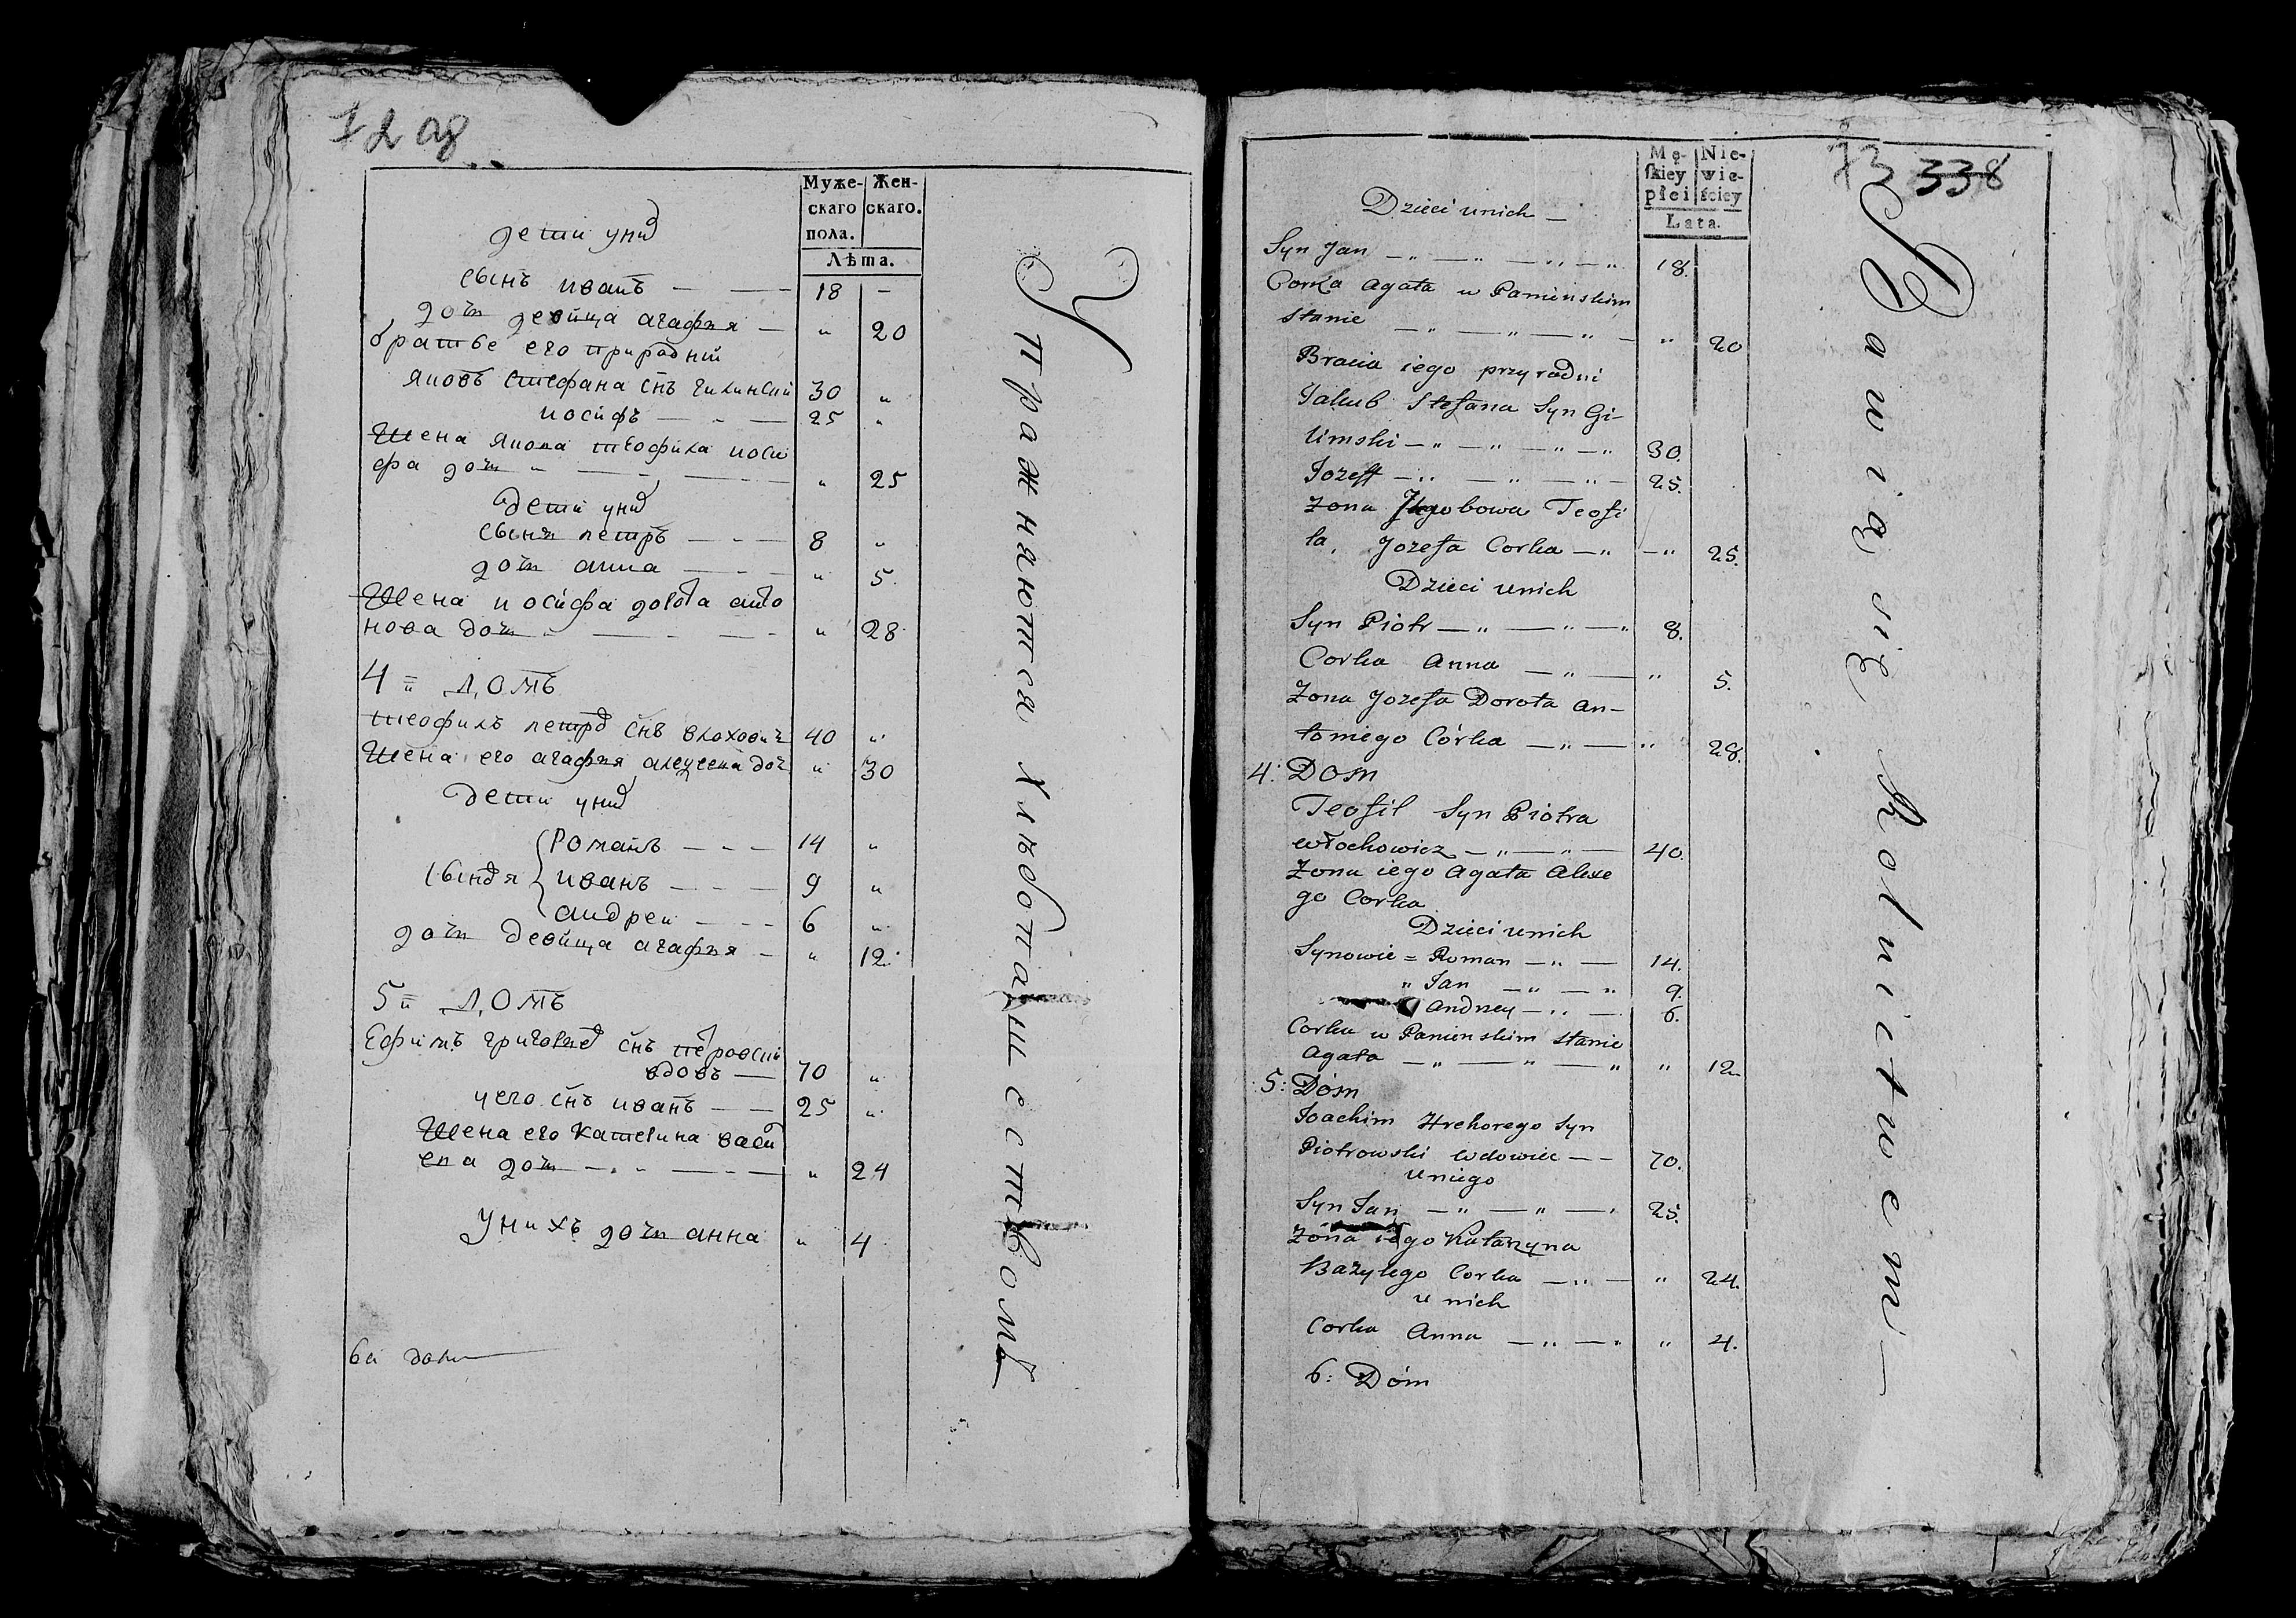 72 об
Муже-
скаго
пола.
Жен-
скаго.
Лѣта.
дети уних
сынъ иванъ — — 18 –
дочь девица агафия — „ 20
братье его природнии
яковъ стефана снъ гилинский 30 „
иосифъ — — 25 „
Жена якова теофила иоси
фа дочь „ — — „ 25
дети уних
сынъ петръ — — 8 „
дочь анна — — „ 5.
Жена иосифа дорота анто
нова дочь — — „ 28
4 = Домъ
теофилъ петра снъ влоховичъ 40 „
Жена его агафия алексеева доч „ 30
дети уних
Романъ — — 14 „
сыновя иванъ — — 9 „
андреи — — 6 „
дочь девица агафия — „ 12
5 = Домъ
Ефимъ григория снъ петровски
вдовъ — 70 „
у него снъ иванъ — — 25 „
Жена его катерина васи
ева дочь — „ — — „ 24
У нихъ дочь анна „ 4
6й домъ
Упражнаются хлѣбопашествомъ
73 338
Mę-
ſkiey
płci
Nie-
wie-
ściey
Lata.
Dzieci unich —
Syn Jan — „ — „ — „ — „ 18.
Corka Agata w Panienskim
stanie — „ — „ — „ — „ 20
Bracia iego przyrodni
Jakub Stefana Syn Gi-
limski — „ — „ — „ — „ 30.
Jozeff — „ — „ — „ — 25.
Zona Jagobowa Teofi
la, Jozefa Corka — „ — „ 25.
Dzieci unich
Syn Piotr — „ — „ — „ 8.
Corka Anna — „ — „ 5.
Zona Jozefa Dorota An-
toniego Córka — „ — „ 28.
4: Dom
Teofil Syn Piotra
włochowicz — „ — „ — 40.
Zona iego Agata Alexe
go Corka
Dzieci unich
Synowie = Roman — „ — 14.
„ Jan — „ — „ 9.
Andrzey — „ — 6.
Corka w Panienskim stanie
Agata — „ — „ — „ „ 12
5: Dóm
Joachim Hrehorego Syn
Piotrowski wdowiec — – 70.
Uniego
Syn Jan — „ — „ — „ 25.
Zona iego Katarzyna
Bazylego Corka — „ — „ 24.
u nich
Corka Anna — „ — „ „ 4.
6: Dóm
Bawią się Rolnictwem —